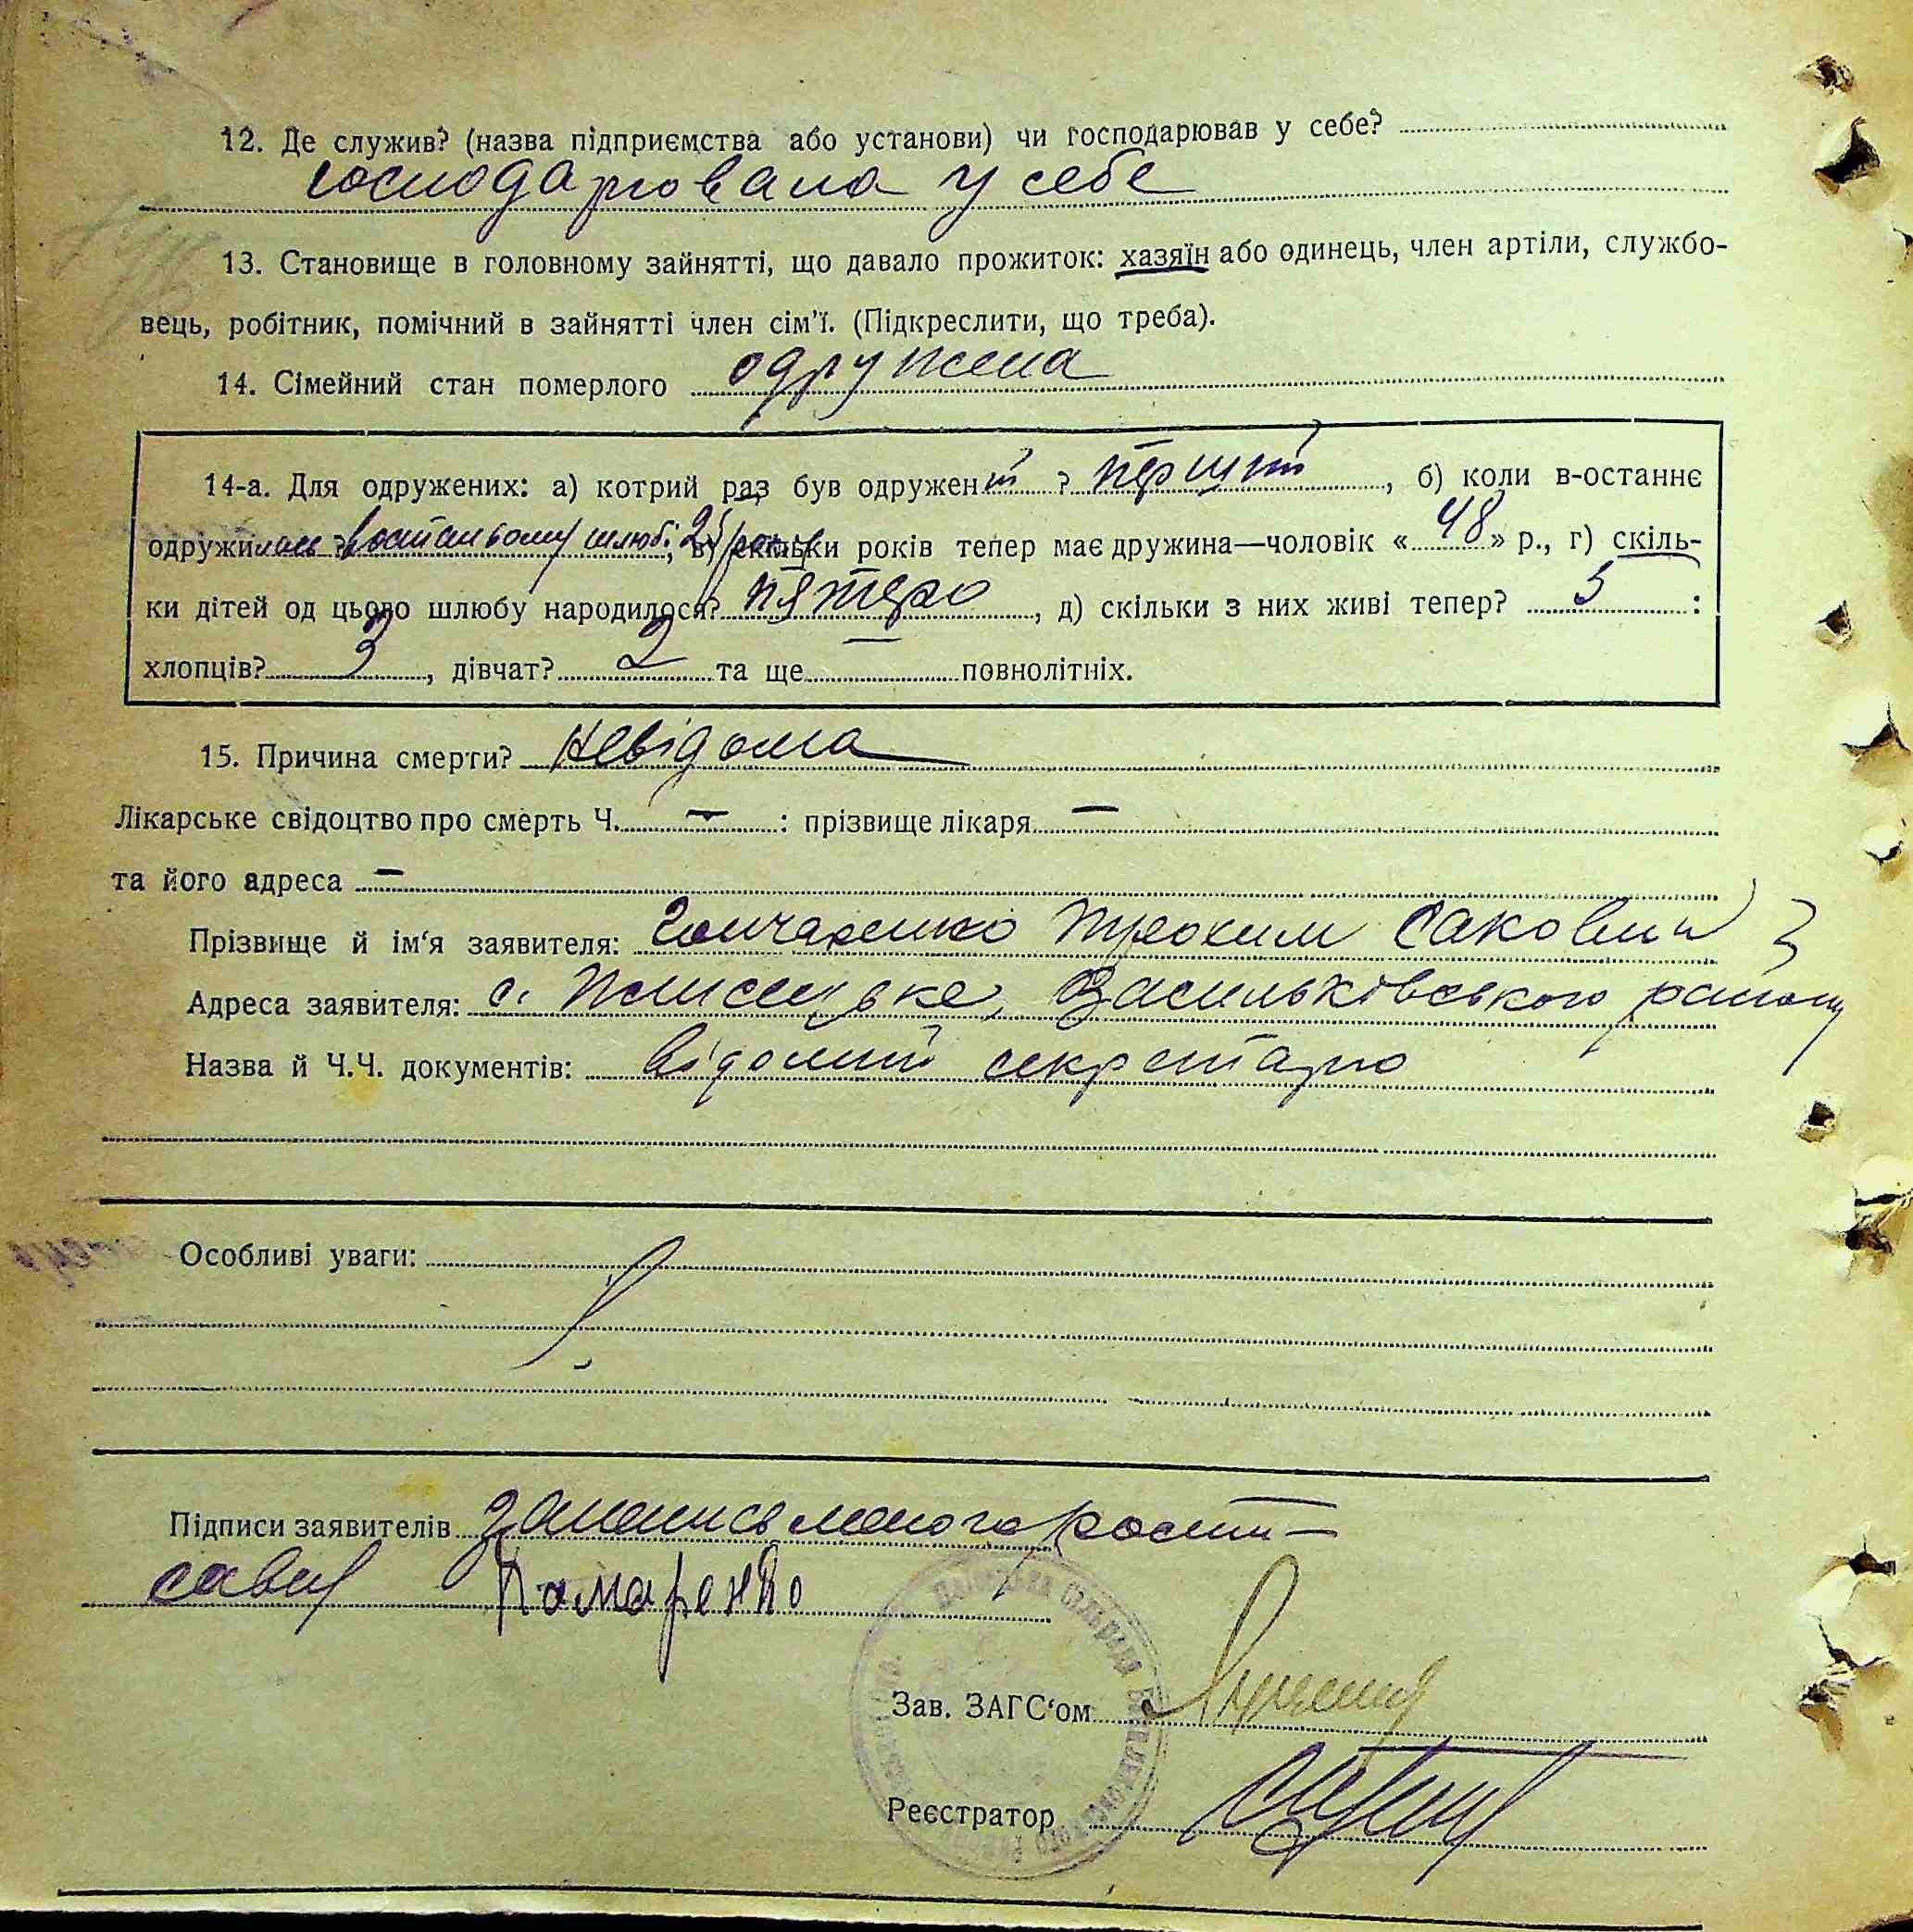 12. Де служив? (назва підприємства або установи) чи господарював у себе?
господарювала у себе
13. Становище в головному зайнятті, що давало прожиток: хазяїн або одинець, член артіли, службо-
вець, робітник, помічний в зайнятті член сім'ї. (Підкреслити, що треба).
14. Сімейний стан померлого одружена
14-а. Для одружених: а) котрий раз був одружен ий? перший, б) коли в-останнє
одружилась? востаньому шлюбі 25 років, в) скільки років тепер має дружина—чоловік « 48 » р., г) скіль-
ки дітей од цього шлюбу народилося? пятеро, д) скільки з них живі тепер? 5 :
хлопців? 3, дівчат? 2 та ще — повнолітніх.
15. Причина смерти? невідома
Лікарське свідоцтво про смерть Ч. — : прізвище лікаря —
та його адреса —
Прізвище й ім'я заявителя: Гончаренко Трохим Сакович
Адреса заявителя: с. Васильківського району
Назва й Ч.Ч. документів: відомий секретарю
Особливі уваги:
Підписи заявителів
Зав. ЗАГС'ом
Реєстратор